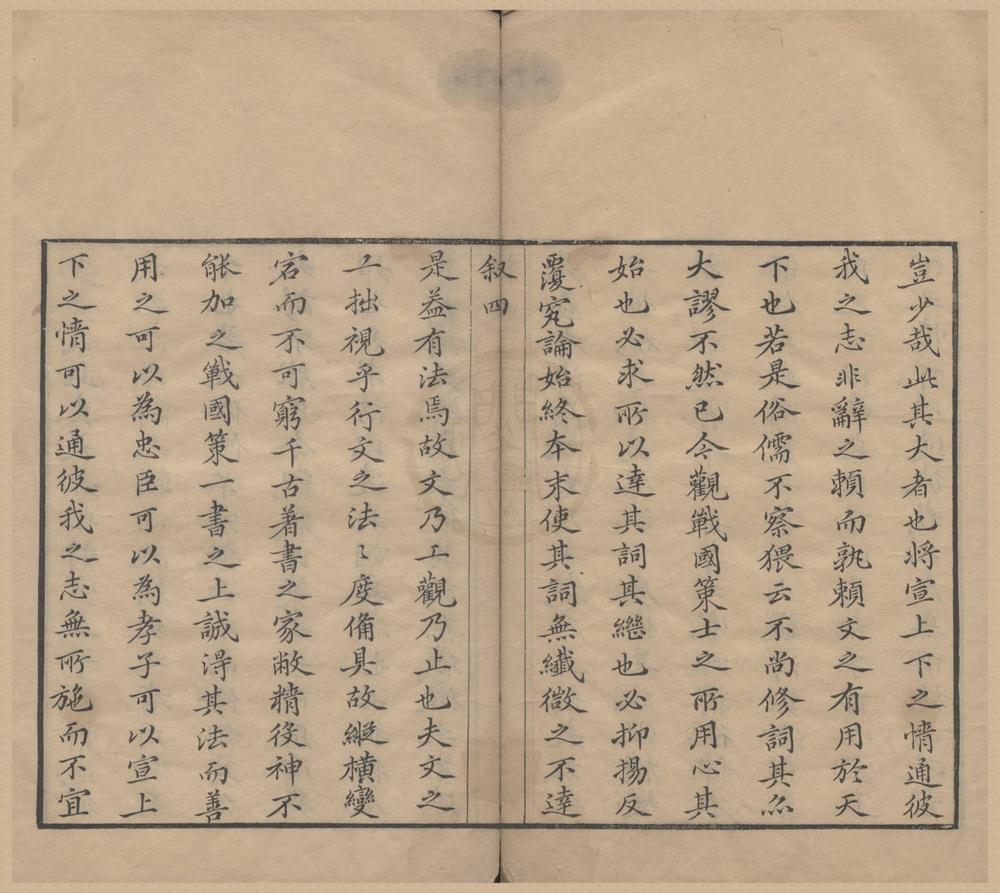 豈少哉此其大者也将宣上下之情通彼
我之志非辭之頼而孰頼文之有用於天
下也若是俗儒不察猥云不尚修詞其亦
大謬不然已今觀戰國策士之所用心其
始也必求所以達其詞其繼也必抑揚反
覆究論始終本末使其詞無纖微之不達
叙四
是益有法焉故文乃工觀乃止也夫文之
工拙視乎行文之法〻度備具故縱横變
宕而不可窮千古著書之家敝精役神不
能加之戰國策一書之上誠得其法而善
用之可以為忠臣可以為孝子可以宣上
下之情可以通彼我之志無所施而不宜